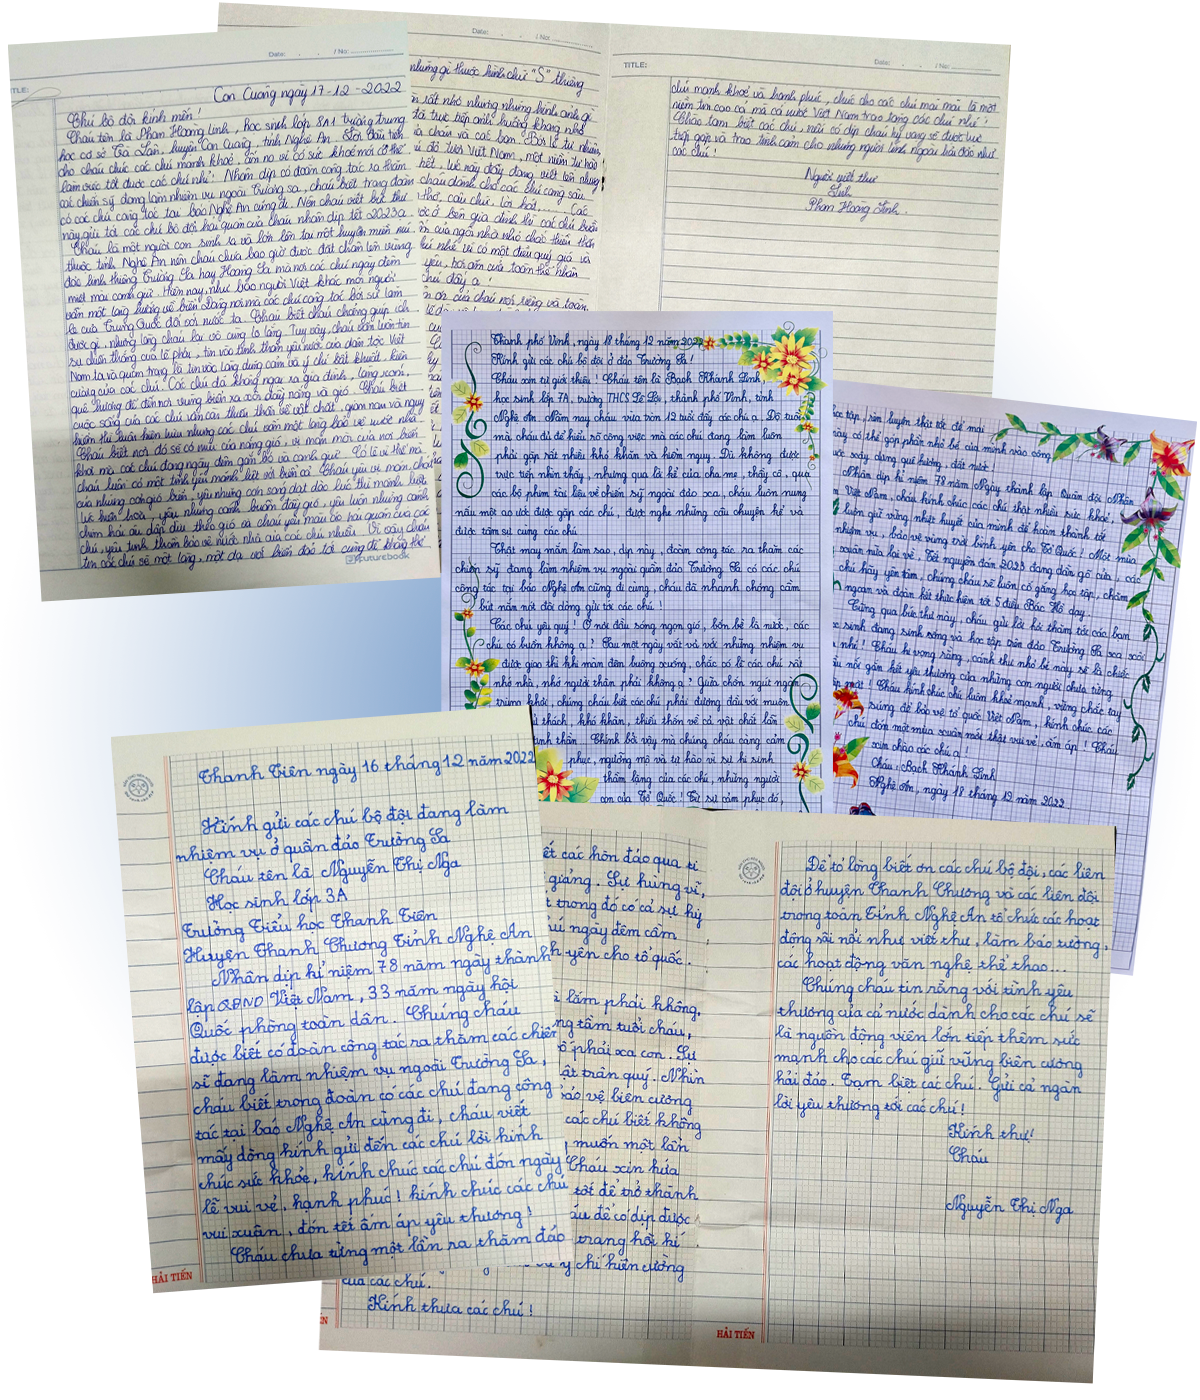 Date: . . / No:
Con Cuông ngày 17-12-2022
Chú bộ đội kính mến!
Cháu tên là Phan Hoàng Linh, học sinh lớp 8A1 trường trung
học cơ sở Trà Lân, huyện Con Cuông, tỉnh Nghệ An. Lời đầu tiên
cho cháu chúc các chú mạnh khoẻ, ấm no vì có sức khoẻ mới có thể
làm việc tốt được các chú nhỉ! Nhân dịp có đoàn công tác ra thăm
các chiến sỹ đang làm nhiệm vụ ngoài Trường Sa, cháu biết trong đoàn
có các chú công tác tại báo Nghệ An cùng đi. Nên cháu viết bức thư
này gửi tới các chú bộ đội hải quân của cháu nhân dịp tết 2023ạ.
Cháu là một người con sinh ra và lớn lên tại một huyện miền núi
thuộc tỉnh Nghệ An nên cháu chưa bao giờ được đặt chân lên vùng
đảo linh thiêng Trường Sa hay Hoàng Sa mà nơi các chú ngày đêm
miệt mài canh giữ. Hiện nay, như bao người Việt khác mọi người
vẫn một lòng hướng về biển Đông nơi mà các chú công tác bởi sự làm
của Trung Quốc đối với nước ta. Cháu biết cháu chẳng giúp ích
được gì, nhưng lòng cháu lại vô cùng lo lắng. Tuy vậy, cháu vẫn luôn tin
sự chiến thắng của lẽ phải, tin vào tinh thần yêu nước của dân tộc Việt
Nam ta và quan trọng là tin vào lòng dũng cảm và ý chí bất khuất, kiên
cường của các chú. Các chú đã không ngại xa gia đình, làng xóm,
quê hương để đến nơi vùng biển xa xôi đầy nắng và gió. Cháu biết
cuộc sống của các chú vẫn còn thiếu thốn về vật chất, gian nan và nguy
hiểm thì luôn hiện hữu nhưng các chú vẫn một lòng bảo vệ nước nhà.
Cháu biết nơi đó sẽ có mùi của nắng gió, vị mặn mòi của nơi biển
khơi mà các chú đang ngày đêm gắn bó và canh giữ. Có lẽ vì thế mà
cháu luôn có một tình yêu mãnh liệt với biển cả. Cháu yêu vị mặn chát
của những cơn gió biển, yêu những con sóng dạt dào lúc thì mãnh liệt
lúc hiền hoà, yêu những cánh buồm đầy gió, yêu luôn những cánh
chim hải âu dập dìu theo gió và cháu yêu màu áo hải quân của các
chú, yêu tinh thần bảo vệ nước nhà của các chú nhiều. Vì vậy cháu
tin các chú sẽ một lòng, một dạ với biển đảo tới cùng để không thể
futurebook
Date: . . / No:
những gì thuộc hình chữ "S" thiêng
rất nhỏ nhưng những hình ảnh gì
đã trực tiếp ảnh hưởng không nhỏ
cháu và các bạn. Bởi lẽ tự nhiên,
đỏ tươi Việt Nam, một niềm tự hào
hết, lúc này đây đang viết lên những
cháu dành cho các chú càng sâu
thơ, câu chữ, lời hát,... Các
ở bên gia đình thì các chú buồn
của ngôi nhà nhỏ chắc thiếu thốn
chú nhé vì có một điều quý giá và
yêu, bởi ơn của toàn thể nhân
chú đấy ạ!
ơn của cháu nói riêng và toàn
TITLE:
Date: . . / No:
chú mạnh khoẻ và hạnh phúc, chúc cho các chú mãi mãi là một
niềm tin cao cả mà cả nước Việt Nam trao tặng các chú nhé!
Chào tạm biệt các chú, nếu có dịp cháu hy vọng sẽ được trực
tiếp gặp và trao tình cảm cho những người lính ngoài hải đảo như
các chú!
Người viết thư
Linh
Phan Hoàng Linh.
Thành phố Vinh, ngày 18 tháng 12 năm 2022
Kính gửi các chú bộ đội ở đảo Trường Sa!
Cháu xin tự giới thiệu! Cháu tên là Bạch Khánh Linh,
học sinh lớp 7A, trường THCS Lê Lợi, thành phố Vinh, tỉnh
Nghệ An. Năm nay cháu vừa tròn 12 tuổi đấy các chú ạ. Độ tuổi
mà cháu đủ để hiểu rõ công việc mà các chú đang làm luôn
phải gặp rất nhiều khó khăn và hiểm nguy. Dù không được
trực tiếp nhìn thấy, nhưng qua lời kể của cha mẹ, thầy cô, qua
các bộ phim tài liệu về chiến sỹ ngoài đảo xa, cháu luôn nung
nấu một ao ước được gặp các chú, được nghe những câu chuyện kể và
được tâm sự cùng các chú.
Thật may mắn làm sao, dịp này, đoàn công tác ra thăm các
chiến sỹ đang làm nhiệm vụ ngoài quần đảo Trường Sa có các chú
công tác tại báo Nghệ An cũng đi cùng, cháu đã nhanh chóng cầm
bút nắn nót đôi dòng gửi tới các chú!
Các chú yêu quý! Ở nơi đầu sóng ngọn gió, bốn bề là nước, các
chú có buồn không ạ? Sau một ngày vất vả với những nhiệm vụ
được giao thì khi màn đêm buông xuống, chắc có lẽ các chú rất
nhớ nhà, nhớ người thân phải không ạ? Giữa chốn ngút ngàn
trùng khơi, chúng cháu biết các chú phải đương đầu với muôn
thử thách, khó khăn, thiếu thốn về cả vật chất lẫn
tinh thần. Chính bởi vậy mà chúng cháu càng cảm
phục, ngưỡng mộ và tự hào vì sự hi sinh
thầm lặng của các chú, những người
con của Tổ Quốc! Từ sự cảm phục đó,
học tập, rèn luyện thật tốt để mai
này có thể góp phần nhỏ bé của mình vào công
cuộc xây dựng quê hương, đất nước!
Nhân dịp kỉ niệm 78 năm Ngày thành lập Quân đội Nhân
Việt Nam, cháu kính chúc các chú thật nhiều sức khoẻ,
luôn giữ vững nhiệt huyết của mình để hoàn thành tốt
nhiệm vụ, bảo vệ vùng trời bình yên cho Tổ Quốc! Một mùa
xuân nữa lại về. Tết nguyên đán 2023 đang đến gõ cửa, các
chú hãy yên tâm, chúng cháu sẽ luôn cố gắng học tập, chăm
ngoan và đoàn kết thực hiện tốt 5 điều Bác Hồ dạy.
Cũng qua bức thư này, cháu gửi lời hỏi thăm tới các bạn
sinh đang sinh sống và học tập trên đảo Trường Sa xa xôi
nhé! Cháu hi vọng rằng, cánh thư nhỏ bé này sẽ là chiếc
cầu nối gắn kết yêu thương của những con người chưa từng
gặp mặt! Cháu kính chúc chú luôn khoẻ mạnh, vững chắc tay
súng để bảo vệ tổ quốc Việt Nam, kính chúc các
chú đón một mùa xuân mới thật vui vẻ, ấm áp! Cháu
xin chào các chú ạ!
Cháu: Bạch Khánh Linh
Nghệ An, ngày 18 tháng 12 năm 2022
Thanh Tiên ngày 16 tháng 12 năm 2022
Kính gửi các chú bộ đội đang làm
nhiệm vụ ở quần đảo Trường Sa
Cháu tên là Nguyễn Thị Nga
Học sinh lớp 3A
Trường Tiểu học Thanh Tiên
Huyện Thanh Chương Tỉnh Nghệ An
Nhân dịp kỉ niệm 78 năm ngày thành
lập QĐND Việt Nam, 33 năm ngày hội
Quốc phòng toàn dân. Chúng cháu
được biết có đoàn công tác ra thăm các chiến
sĩ đang làm nhiệm vụ ngoài Trường Sa,
cháu biết trong đoàn có các chú đang công
tác tại báo Nghệ An cùng đi, cháu viết
mấy dòng kính gửi đến các chú lời kính
chúc sức khỏe, kính chúc các chú đón ngày
lễ vui vẻ, hạnh phúc! kính chúc các chú
vui xuân, đón tết ấm áp yêu thương!
Cháu chưa từng một lần ra thăm đảo
HẢI TIẾN
biết các hòn đảo qua ti
giảng. Sự hùng vĩ,
trong đó có cả sự hy
chú ngày đêm cầm
bình yên cho tổ quốc.
lắm phải không,
tầm tuổi cháu,
bố phải xa con. Sự
thật trân quý. Nhìn
bảo vệ biên cương
các chú biết không
muốn một lần
Cháu xin hứa
tốt để trở thành
để có dịp được
trang hỏi kí
ý chí kiên cường
của các chú.
Kính thưa các chú!
Để tỏ lòng biết ơn các chú bộ đội, các liên
đội ở huyện Thanh Chương và các liên đội
trong toàn Tỉnh Nghệ An tổ chức các hoạt
động sôi nổi như viết thư, làm báo tường,
các hoạt động văn nghệ thể thao...
Chúng cháu tin rằng với tình yêu
thương của cả nước dành cho các chú sẽ
là nguồn động viên lớn tiếp thêm sức
mạnh cho các chú giữ vững biên cương
hải đảo. Tạm biệt các chú. Gửi cả ngàn
lời yêu thương tới các chú!
Kính thư!
Cháu
Nguyễn Thị Nga
HẢI TIẾN